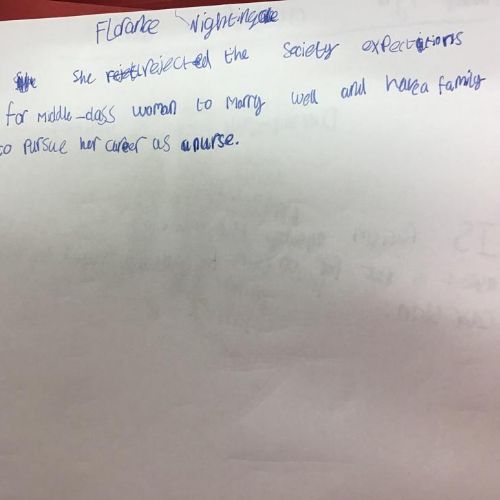 Florance Nightingale
She rejected the society expectations
for middle-class woman to marry well and have a family
to pursue her career as a nurse.